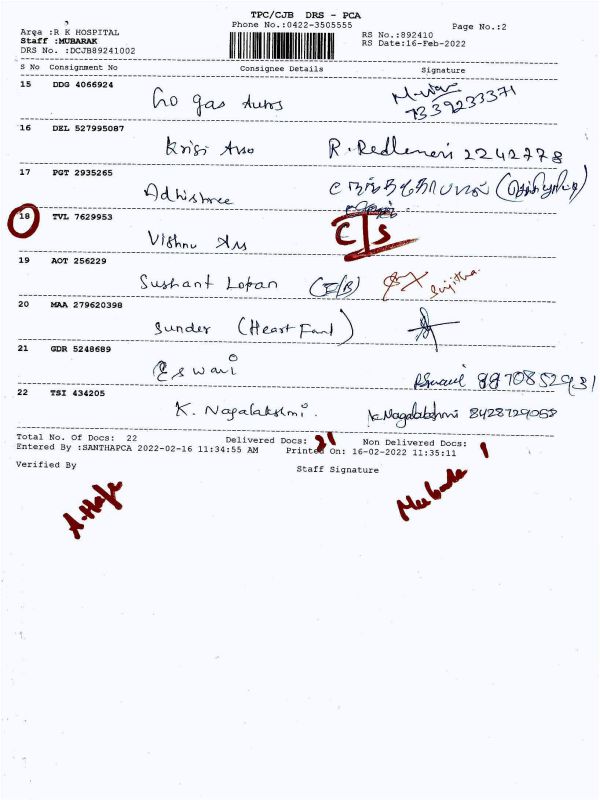 TPC/CJB DRS - PCA
Phone No.:0422-3505555 Page No.:2
Area :R K HOSPITAL
Staff :MUBARAK
DRS No. :DCJB89241002
RS No.:892410
RS Date:16-Feb-2022
S No Consignment No Consignee Details Signature
15 DDG 4066924
gas 7339233371
16 DEL 527995087
Krisi 2242778
17 PGT 2935265
Adhishree
18 TVL 7629953
Vishnu C/S
19 AOT 256229
Sushant (E/B) Sujitha
20 MAA 279620398
Sunder (Heart Fand)
21 GDR 5248689
Eswari
22 TSI 434205
K. Nagalakshmi. K.Nagalakshmi
Total No. Of Docs: 22 Delivered Docs: 21 Non Delivered Docs: 1
Entered By :SANTHAPCA 2022-02-16 11:34:55 AM Printed On: 16-02-2022 11:35:11
Verified By Staff Signature